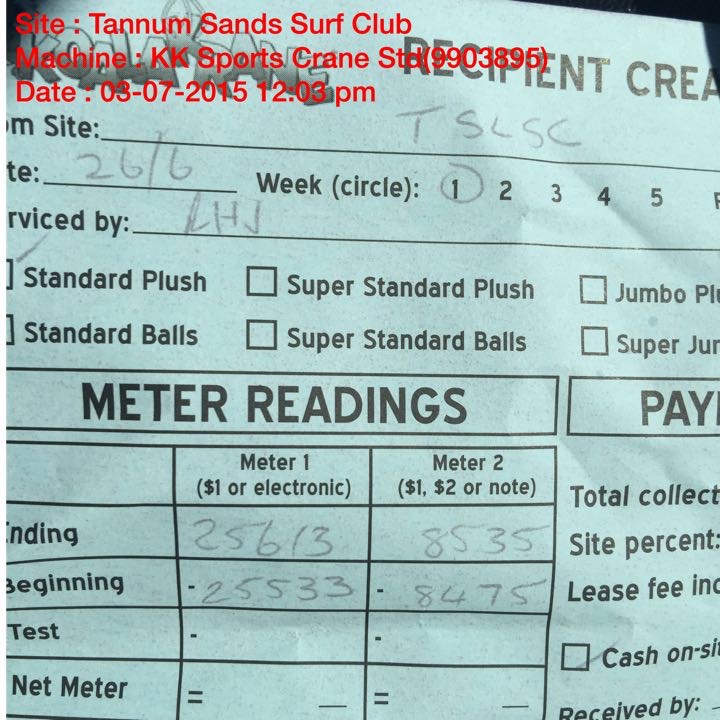 Site : Tannum Sands Surf Club
Machine : KK Sports Crane Std(9903895)
Date : 03-07-2015 12:03 pm
RECIPIENT CREA
om Site: TSLSC
te: 26/6 Week (circle): 1 2 3 4 5
rviced by: LHJ
Standard Plush Super Standard Plush Jumbo Plu
Standard Balls Super Standard Balls Super Jum
METER READINGS PAY
Meter 1 Meter 2
($1 or electronic) ($1, $2 or note) Total collect
Ending 25613 8535 Site percent:
Beginning - 25533 - 8475 Lease fee inc
Test - -
Cash on-sit
Net Meter = — = —
Received by: